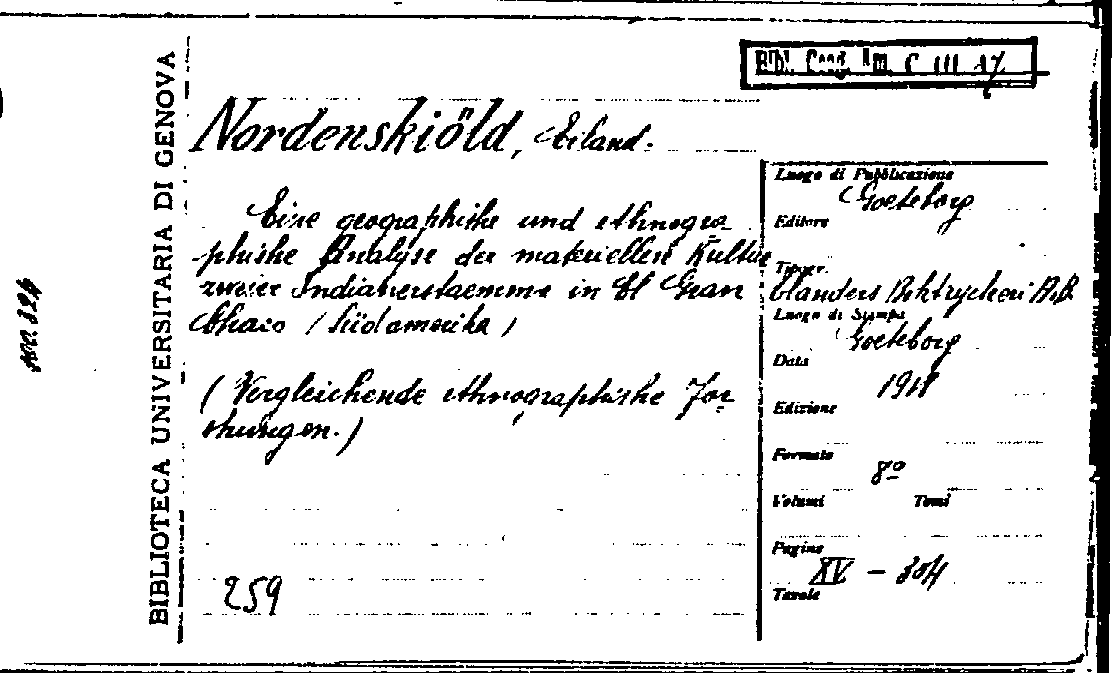 BIBLIOTECA UNIVERSITARIA DI GENOVA
Bibl. Cong. Am. C III 17
Nordenskiöld, Erland.
Eine geographishe und ethnogra-
phishe Analyse der materiellen Kultur
zweier Indianerstaemme in El Gran
Chaco (Südamerika)
(Vergleichende ethnographishe For-
shungen.)
259
Luogo di Pubblicazione
Goeteborg
Editore
Tipogr.
Elanders Boktryckeri A.B.
Luogo di Stampa
Goeteborg
Data
1918
Edizione
Formato
8º
Volumi Tomi
Pagine
XV - 304
Tavole